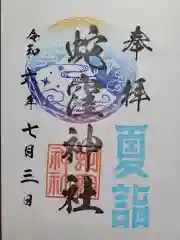 奉拝
夏詣
蛇窪神社
令和六年七月三日